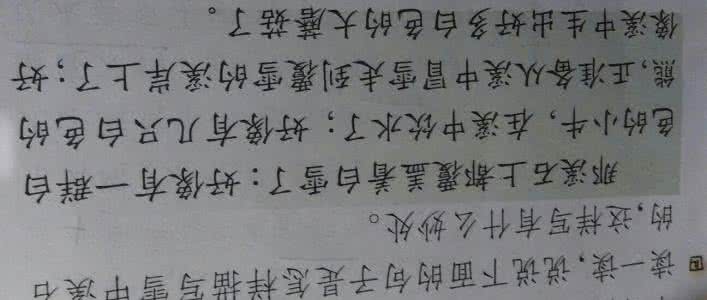 读一读，说说下面的句子是怎样描写雪中溪石
的，这样写有什么妙处。
那溪石上都覆盖着白雪了：好像有一群白
色的小牛，在溪中饮水了；好像有几只白色的
熊，正准备从溪中冒雪走到覆雪的溪岸上了；好
像溪中生出好多白色的大蘑菇了。